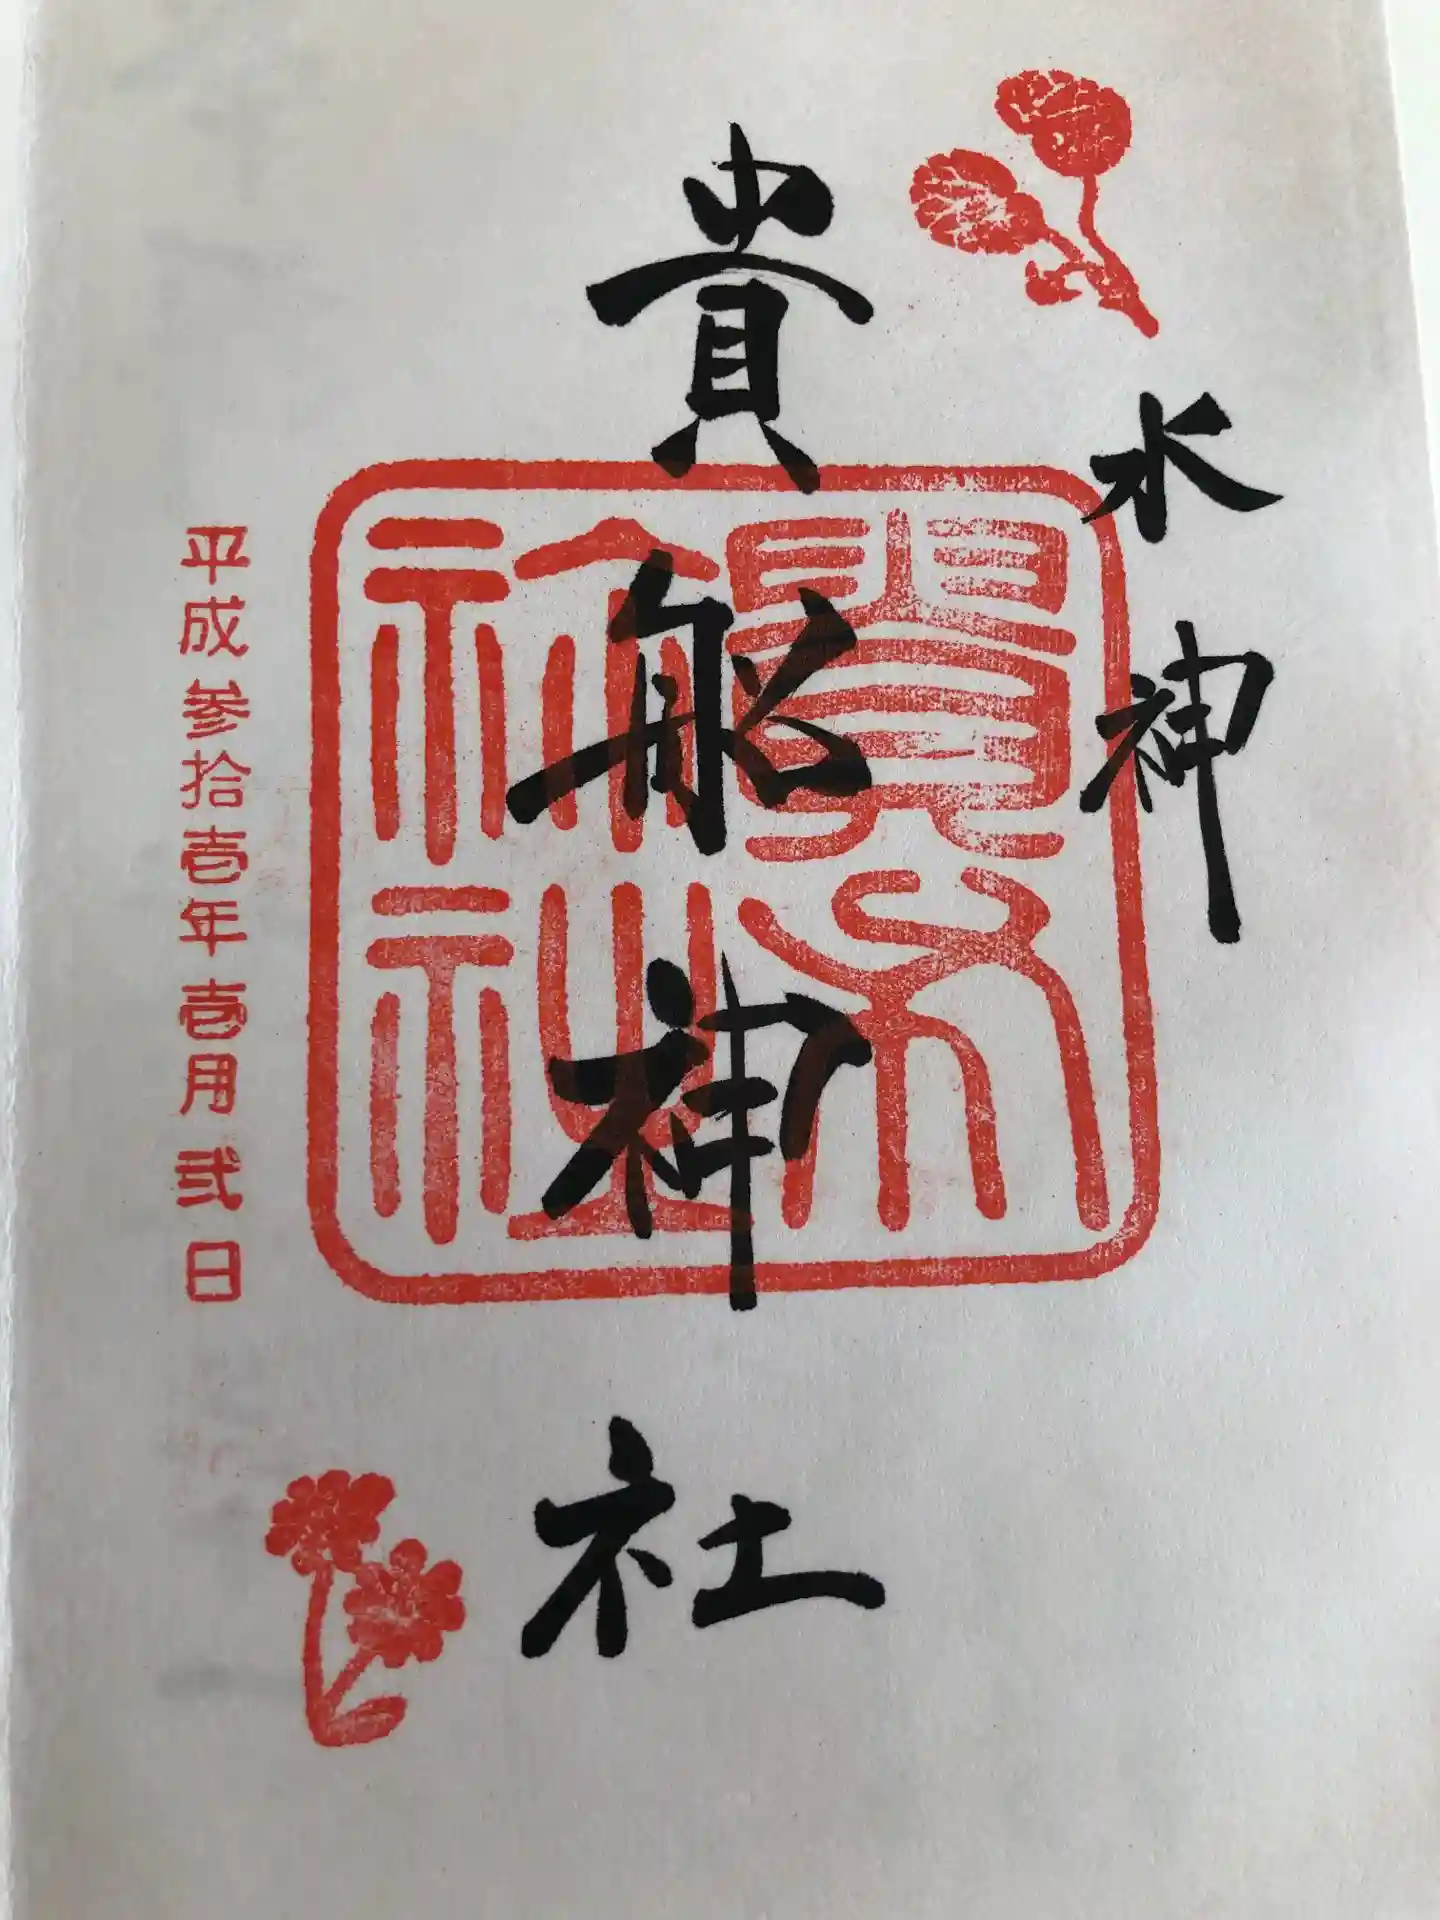 水神
貴船神社
貴布祢社
平成参拾壱年壱月弐日